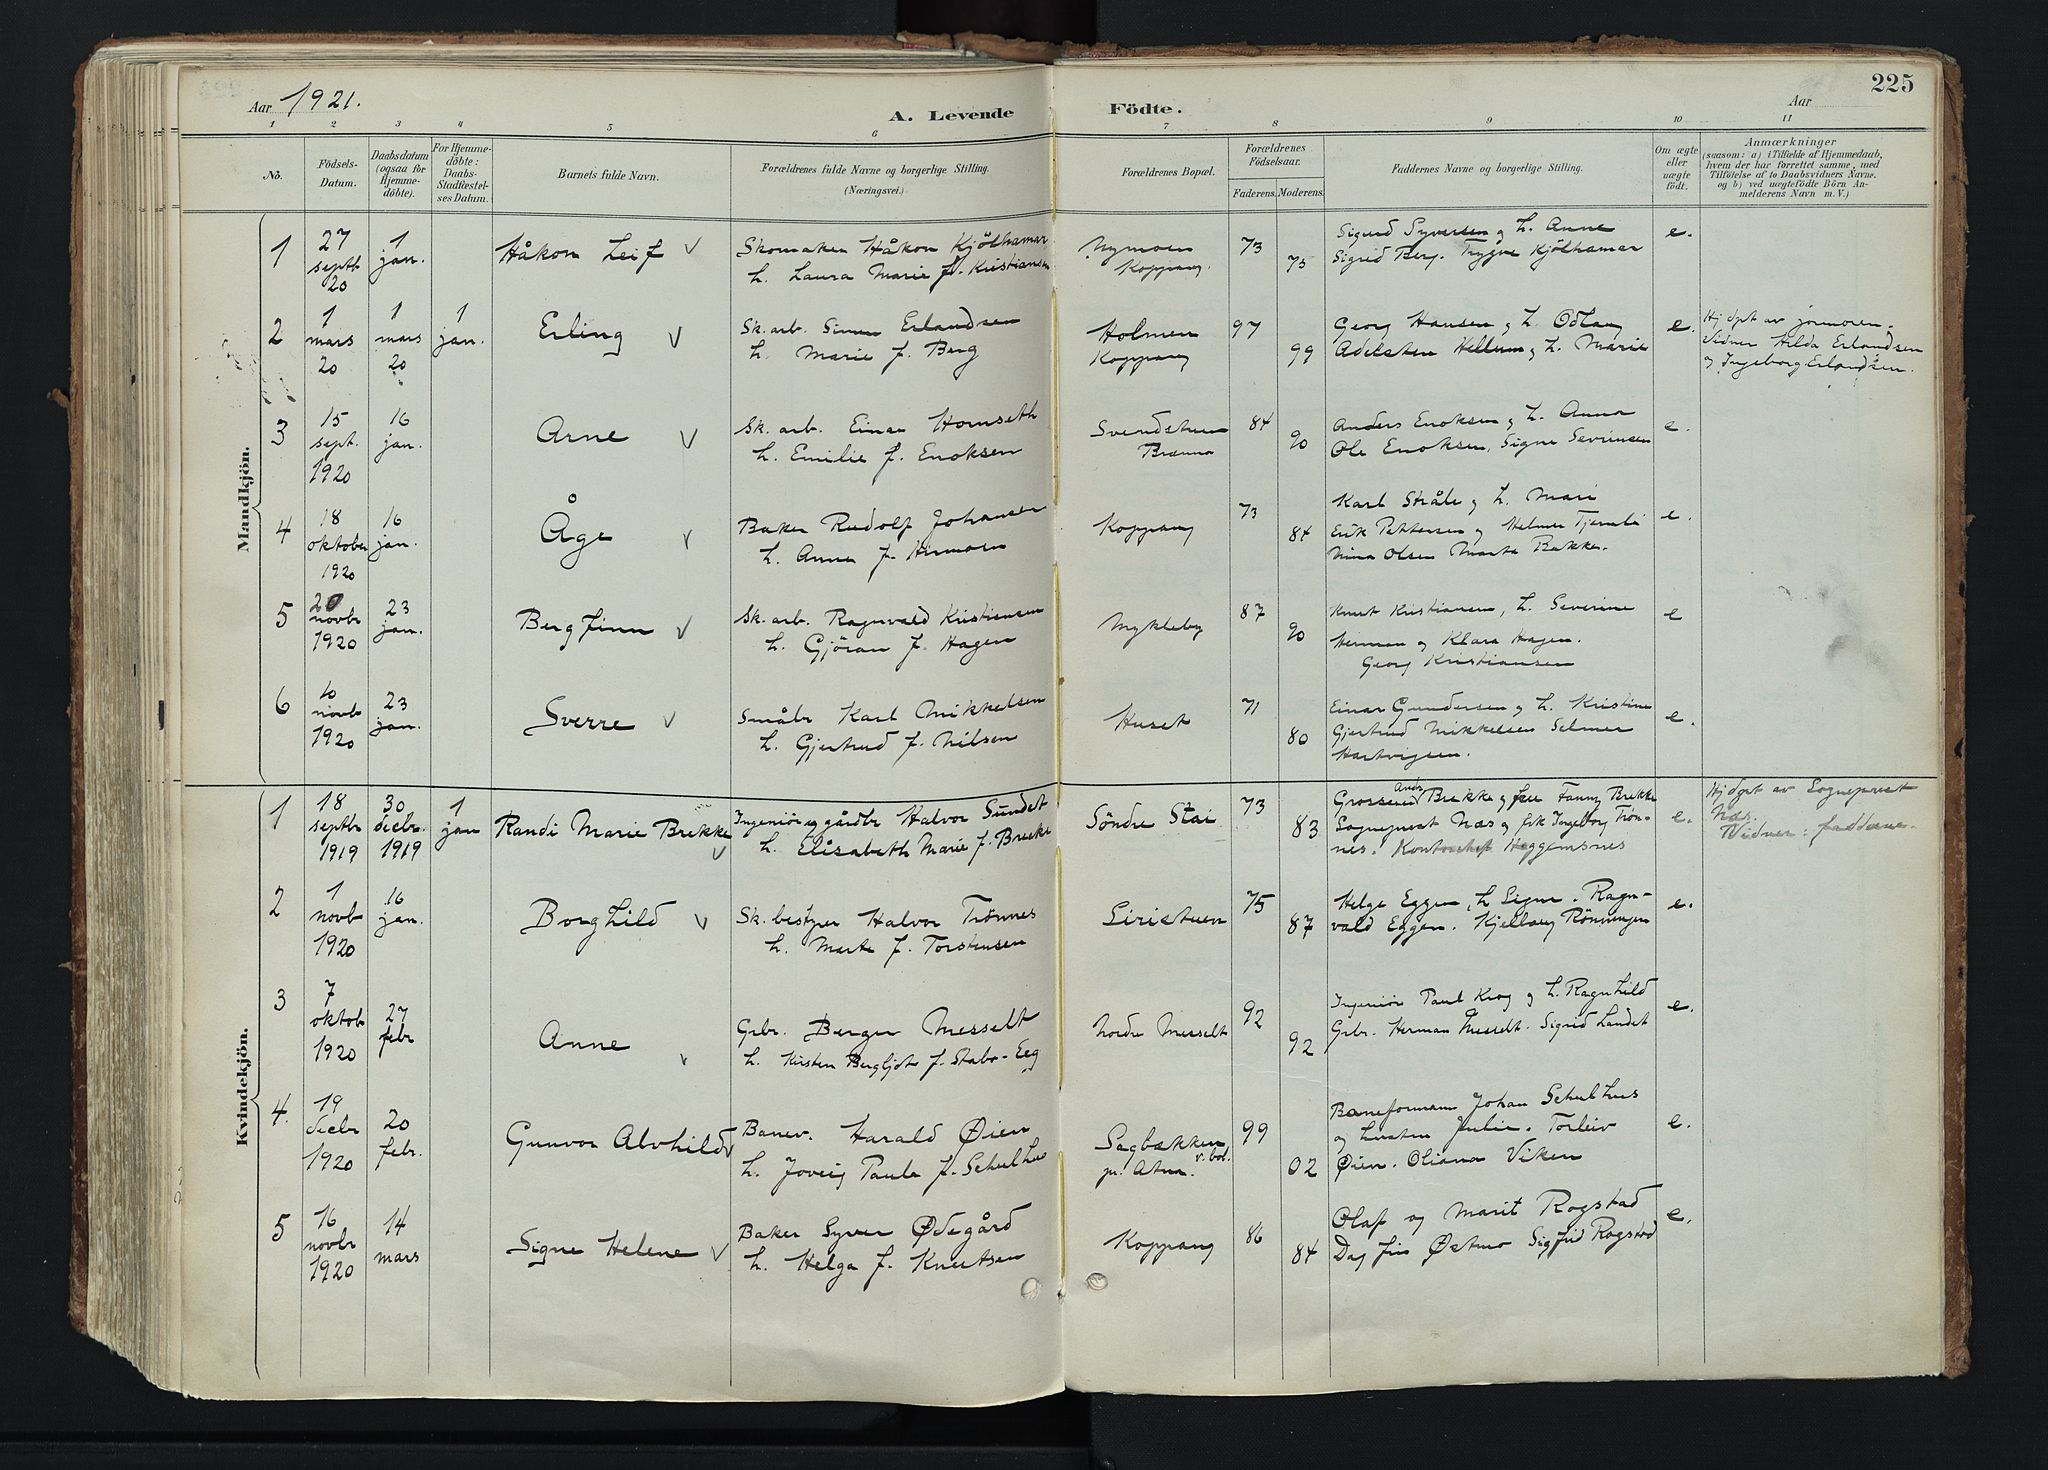 Aar 1921.
A. Levende Födte.
Aar
225
1 2 3 4 5 6 7 8 9 10 11
No.
Födsels-Datum.
Daabsdatum (ogsaa for Hjemme-döbte).
For Hjemme-döbte: Daabs-Stadfæstel-ses Datum.
Barnets fulde Navn.
Forældrenes fulde Navne og borgerlige Stilling. (Næringsvei.)
Forældrenes Bopæl.
Forældrenes Födselsaar. Faderens. Moderens.
Faddernes Navne og borgerlige Stilling.
Om ægte eller uægte födt.
Anmærkninger (saasom: a) i Tilfælde af Hjemmedaab, hvem der har forrettet samme, med Tilföielse af to Daabsvidners Navne, og b) ved uægtefödte Börn An-melderens Navn m. V.)
Mandkjön.
1 27 septb 20 1 jan. Håkon Leif v Skomaker Håkon Kjölhamar Nymoen 73 Sigurd Syversen og h. Anne e.
h. Laura Marie f. Kristiansen Koppang. 75 Sigrid Berg. Trygve Kjölhamar
2 1 mars 20 1 mars 20 1 jan. Erling v Sk. arb. Simen Erlandsen Holmen 97 Georg Hansen og h. Odlaug e. Hjdpt av jormoren.
h. Marie f. Berg Koppang 99 Adelsten Hellum og h. Marie Vidner Hilda Erlandsen
og Ingeborg Erlandsen.
3 15 sept. 1920 16 jan. Arne v Sk. arb. Einar Homseth Svendstuen 84 Anders Enoksen og h. Anna e.
h. Emilie f. Enoksen Brænna 90 Ole Enoksen, Signe Severinsen
4 18 oktober 1920 16 jan. Åge v Baker Rudolf Johansen Koppang 73 Karl Stråle og h. Mari e.
h. Anna f. 84 Erik Pettersen og Helmer Tjernli
Nina Olsen Marta Bakke.
5 20 novbr 1920 23 jan. Bergfinn v Sk. arb. Ragnvald Kristiansen Mykleby 87 Knut Kristiansen, h. Severine e
h. Gjöran f. Hagen 90 Herman og Klara Hagen.
Georg Kristiansen
6 10 novb 1920 23 jan. Sverre v Småbr Karl Mikkelsen Huset 71 Einar Gundersen og h. Kristine e.
h. Gjertrud f. Nilsen 80 Gjertrud Mikkelsen Selmer
Hartvigsen.
Kvindekjön.
1 18 septbr 1919 30 decbr. 1919 1 jan Randi Marie Brekke v Ingeniör og gårdbr Halvor Sundet Söndre Stai 73 Grosserer Andr. Brekke og frue Fanny Brekke e. Hjdpt av Sogneprest
h. Elisabeth Marie f. Brekke 83 Sogneprest Næs og frk Ingeborg Trön- Næs.
nes. Heggemsnes Vidner: fadderne.
2 1 novb 1920 16 jan. Borghild v Sk. bestyrer Halvor Trönnes Siristuen 75 Helge Eggen, h Signe. Ragn- e.
h. Marte f. Torstensen 87 vald Eggen. Kjellaug Rönningen
3 7 oktob 1920 27 febr Anne v Gbr. Berger Messelt Nordre Messelt 92 Ingeniör Paul Krog og h. Ragnhild e.
h. Kirsten Bergljot f. Stabo-Eeg 92 Grbr. Herman Messelt. Sigrid Landet
4. 19 decbr 1920 20 febr. Gunvor Alvhild v Banev. Harald Øien Sagbækken v. bol. 99 Baneformann Johan Schulhus e.
h. Joveig Paula f. Schulhus pr. Atna. 02 og hustru Julie. Torleiv
Øien. Oliana Viken
5 16 novbr 1920 14 mars Signe Helene v Baker Syver Ødegård Koppang 86 Olaf og Marit Rogstad e.
h. Helga f. Knutsen 84 Dag Østmo Sigfrid Rogstad